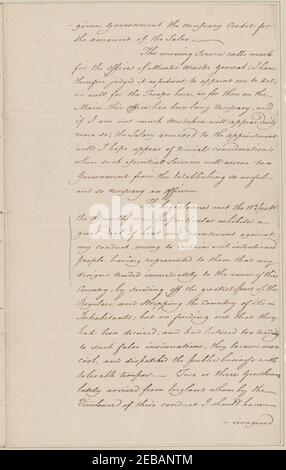 given Government the necessary Credit for
the amount of the Sales.
The ensuing Service calls much
for the office of Muster Master General; I have
therefore judged it expedient to appoint one to act,
as well for the Troops here, as for them on the
Main. this office has been long necessary, and
if I am not much mistaken will appear daily
more so; the Salary annexed to the appointment
will I hope appear of trivial consideration
when such essential Services will accrue to
Government from the establishing so useful
and so necessary an officer.
The met the
the in particular exhibited a
great deal of against
my conduct, owing to certain evil intentioned
people having represented to them that my
designs tended immediately to the ruin of this
Country, by sending off the greatest part of the
Regulars and stripping the Country of its
Inhabitants; but on finding out that they
had been deceived, and had listened too readily
to such false insinuations, they became more
cool, and dispatched the public business with
tolerable temper. Two or three Gentlemen
lately arrived from England whom by the
Virulence of their conduct I should have
imagined
alamy
Image ID: 2BABNTM
www.alamy.com